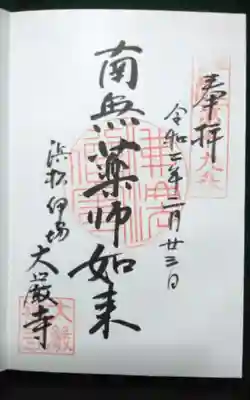 奉拝
令和二年二月廿三日
南無薬師如来
浜松伊場
大厳寺